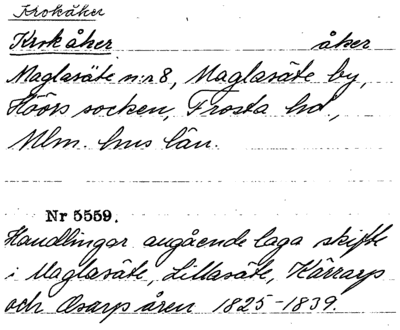 Krokåker
Krokåker åker
Maglasäte n:r 8, Maglasäte by,
Höörs socken, Frosta hd,
Mlm. hus län.
Nr 5559.
Handlingar angående laga skifte
i Maglasäte, Lillasäte, Kärrarp
och Osarp åren 1825-1839